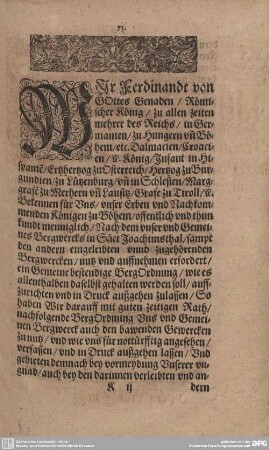 73.
WIr Ferdinandt von
GOttes Genaden / Römi
scher König / zu allen zeiten
mehrer des Reichs / in Ger
manien / zu Hungern vñ Bö
hem / etc. Dalmacien / Croaci
en / ꝛc. König / Infant in Hi
spanië / Ertzhertzog zu Osterreich / Hertzog zu Bur
gundien / zu Lützenburg / vñ in Schlesien / Marg
graffe zu Merhern vñ Lausitz / Graffe zu Tiroll / ꝛc.
Bekennen für Vns / vnser Erben vnd Nachkom
menden Königen zu Böhem / offentlich vnd thun
kundt menniglich / Nach dem vnser vnd Gemei
nes Bergwercks in Sāct Joachimsthal / sampt
den andern eingeleibten vnnd zugehörenden
Bergwercken / nutz vnd auffnehmen erfordert /
ein Gemeine bestendige BergOrdnung / wie es
allenthalben daselbst gehalten werden soll / auff-
zurichten vnd in Druck außgehen zulassen / So
haben Wir darauff mit guten zeitigen Rath /
nachfolgende BergOrdnung Vns vnd Gemei
nen Bergwerck auch den bawenden Gewercken
zu nutz / vnd wie vns für notturfftig angesehen /
verfassen / vnd in Druck außgehen lassen / Vnd
gebieten demnach bey vormeydung Vnserer vn
gnad / auch bey den darinnen verleibten vnd an-
K ij dern